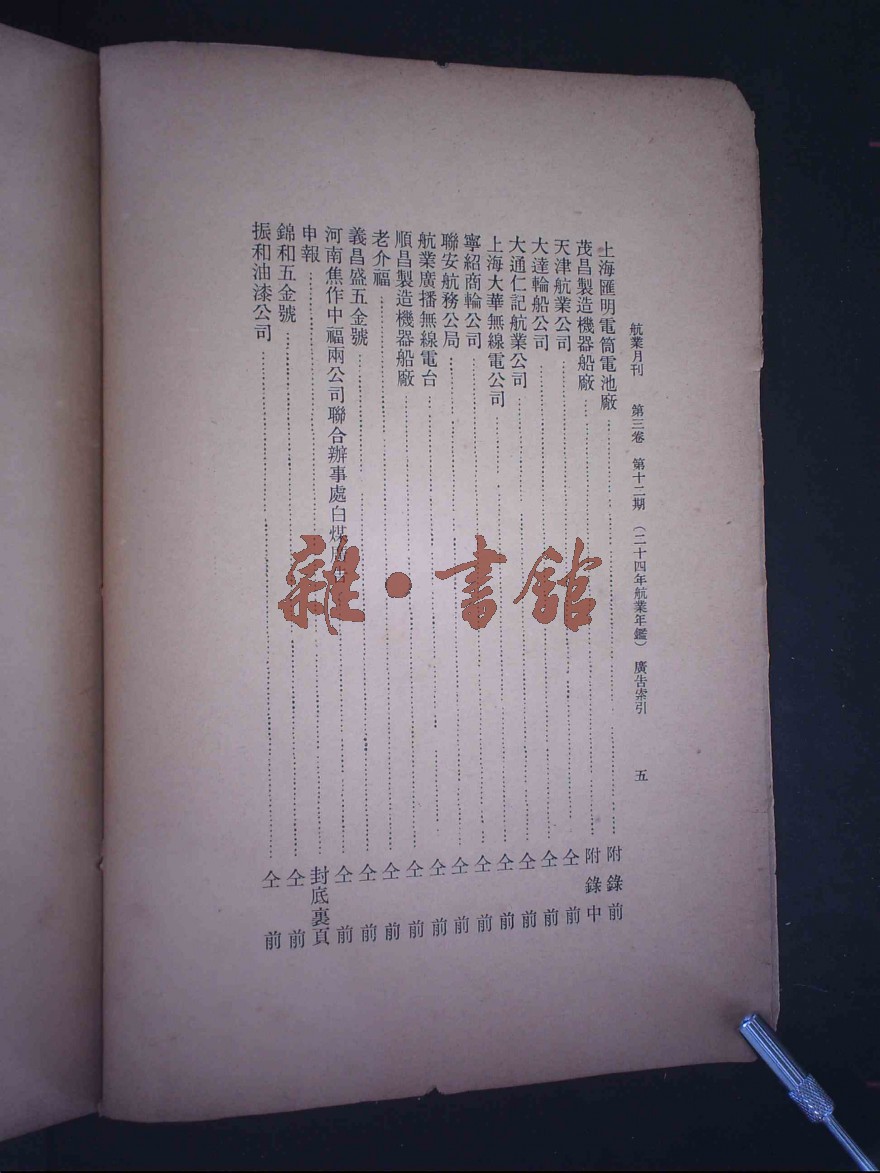 航業月刊 第三卷 第十二期 (二十四年航業年鑑) 廣告索引 五
上海匯明電筒電池廠 附錄前
茂昌製造機器船廠 附錄中
天津航業公司 仝前
大達輪船公司 仝前
大通仁記航業公司 仝前
上海大華無線電公司 仝前
寧紹商輪公司 仝前
聯安航務公局 仝前
航業廣播無線電台 仝前
順昌製造機器船廠 仝前
老介福 仝前
義昌盛五金號 仝前
河南焦作中福兩公司聯合辦事處白煤 仝前
申報 封底裏頁
錦和五金號 仝前
振和油漆公司 仝前
雜·書館